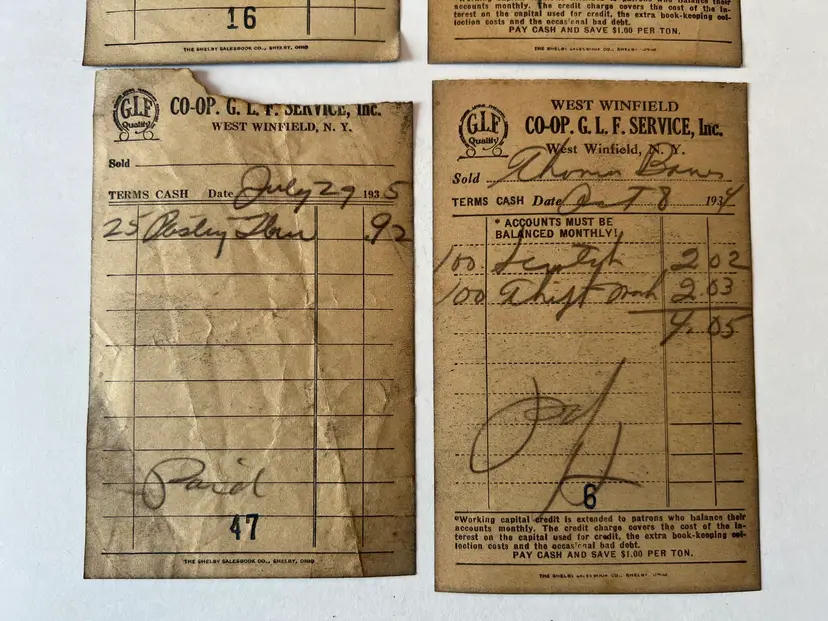 16
THE SHELBY SALESBOOK CO., SHELBY, OHIO
accounts monthly. The credit charge covers the cost of the in-
terest on the capital used for credit, the extra book-keeping col-
lection costs and the occasional bad debt.
PAY CASH AND SAVE $1.00 PER TON.
THE SHELBY SALESBOOK CO., SHELBY, OHIO
G.L.F.
Quality
CO-OP. G. L. F. SERVICE, Inc.
WEST WINFIELD, N. Y.
Sold
TERMS CASH Date July 29 1935
25 Pastry Flour .92
Paid
47
THE SHELBY SALESBOOK CO., SHELBY, OHIO
WEST WINFIELD
G.L.F.
Quality
CO-OP. G. L. F. SERVICE, Inc.
West Winfield, N. Y.
Sold Thomas
TERMS CASH Date Oct 8 1934
* ACCOUNTS MUST BE
BALANCED MONTHLY!
100 2 02
100 Thift Mash 2 03
4.05
Pd
6
*Working capital credit is extended to patrons who balance their
accounts monthly. The credit charge covers the cost of the in-
terest on the capital used for credit, the extra book-keeping col-
lection costs and the occasional bad debt.
PAY CASH AND SAVE $1.00 PER TON.
THE SHELBY SALESBOOK CO., SHELBY, OHIO